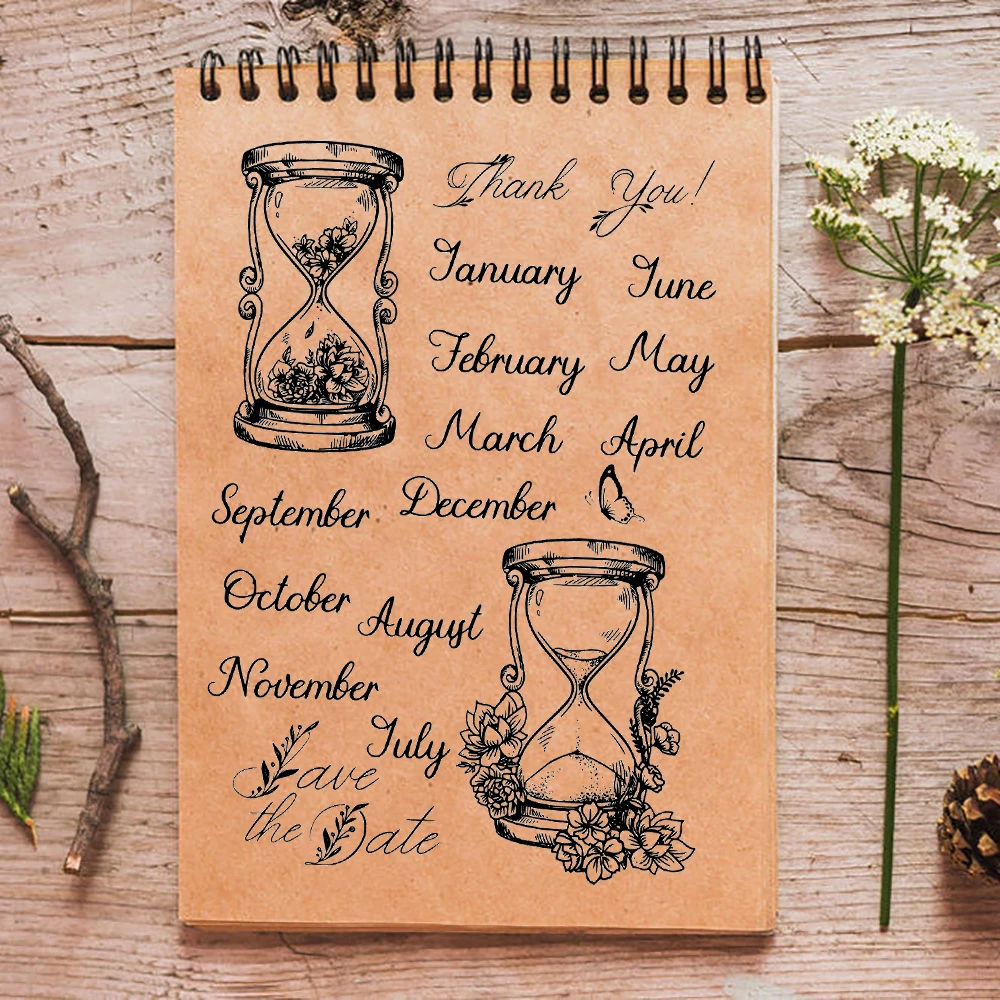 Thank You!
January June
February May
March April
September December
October August
November
July
Save
the Date